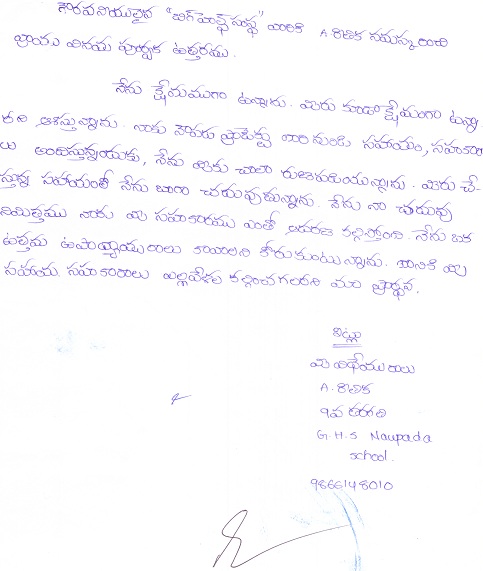 గౌరవనీయులైన "బిగ్ హెల్ప్ సంస్థ" వారికి A. రాధిక నమస్కరించి
వ్రాయు వినయ పూర్వక ఉత్తరము.
నేను క్షేమముగా ఉన్నాను. మీరు కూడా క్షేమంగా ఉన్నా
రని ఆశిస్తున్నాను. నాకు నౌపడ ప్రాజెక్టు వారి నుండి సహాయం, సహకారా
లు అందిస్తున్నందుకు, నేను మీకు చాలా రుణపడియున్నాను. మీరు చే-
స్తున్న సహాయంతో నేను బాగా చదువుచున్నాను. నేను నా చదువు
నిమిత్తము నాకు మీ సహకారము ఎంతో ఆదరణ కల్గిస్తోంది. నేను ఒక
ఉత్తమ ఉపాధ్యాయురాలు కావాలని కోరుకుంటున్నాను. దానికి మీ
సహాయ సహకారాలు ఎల్లవేళలా కల్గించగలరని మా ప్రార్థన.
ఇట్లు
మీ విధేయురాలు
A. రాధిక
9వ తరగతి
G.H.S. Naupada
school.
9866148010